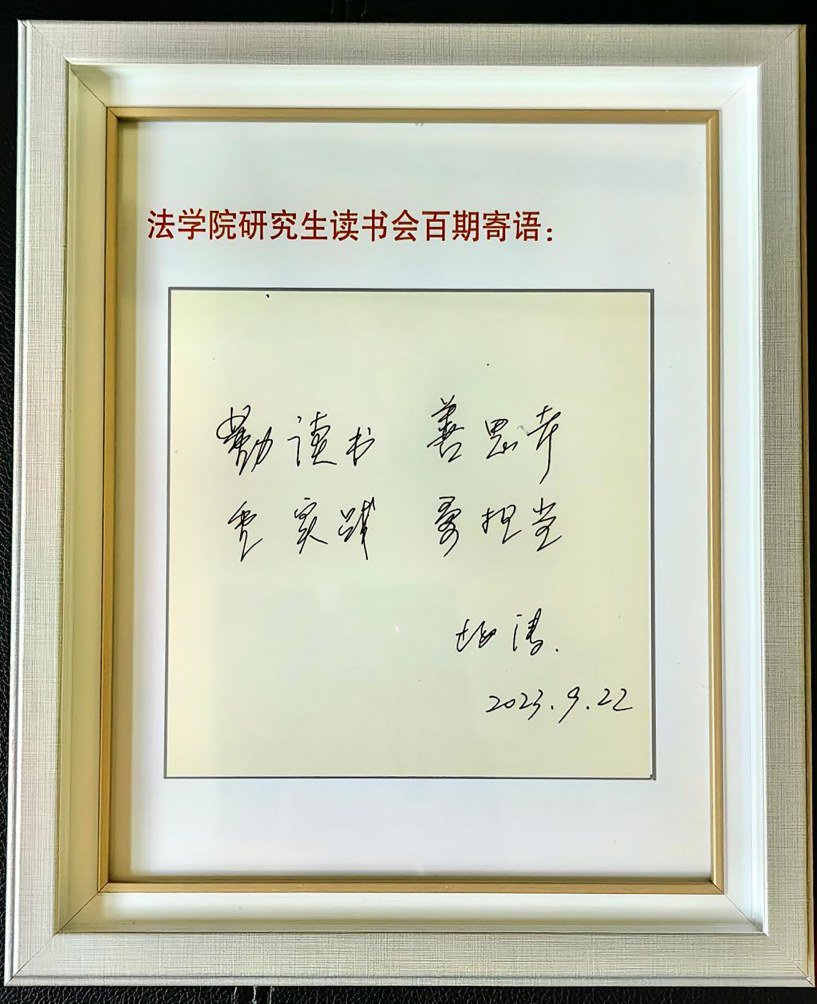 法学院研究生读书会百期寄语:
勤读书 善思考
重实践 勇担当
2023.9.22